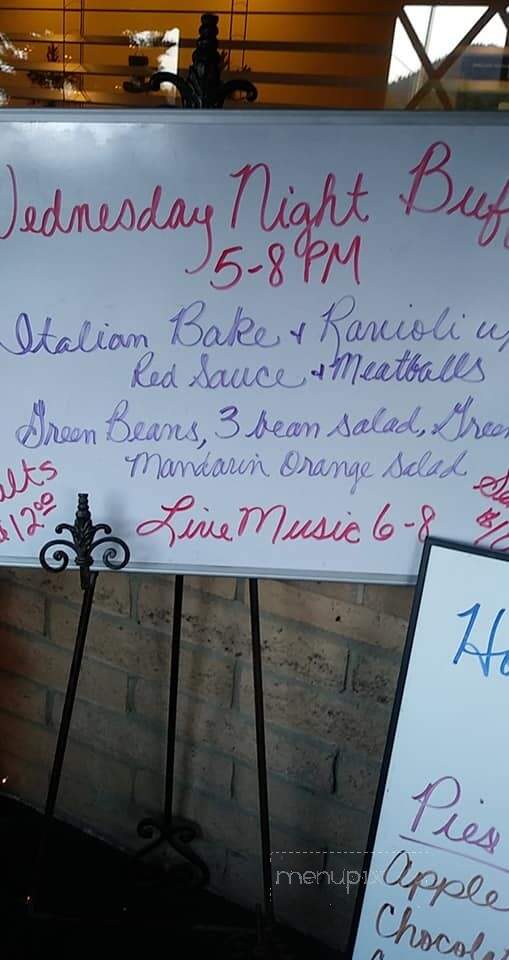 Wednesday Night Buf
5-8 PM
Italian Bake & Ravioli w/
Red Sauce & Meatballs
Green Beans, 3 bean salad, Green
Mandarin Orange Salad
ults
$12.00
Live Music 6-8
Se
$10
Ho
Pies
Apple
Chocola
menupix